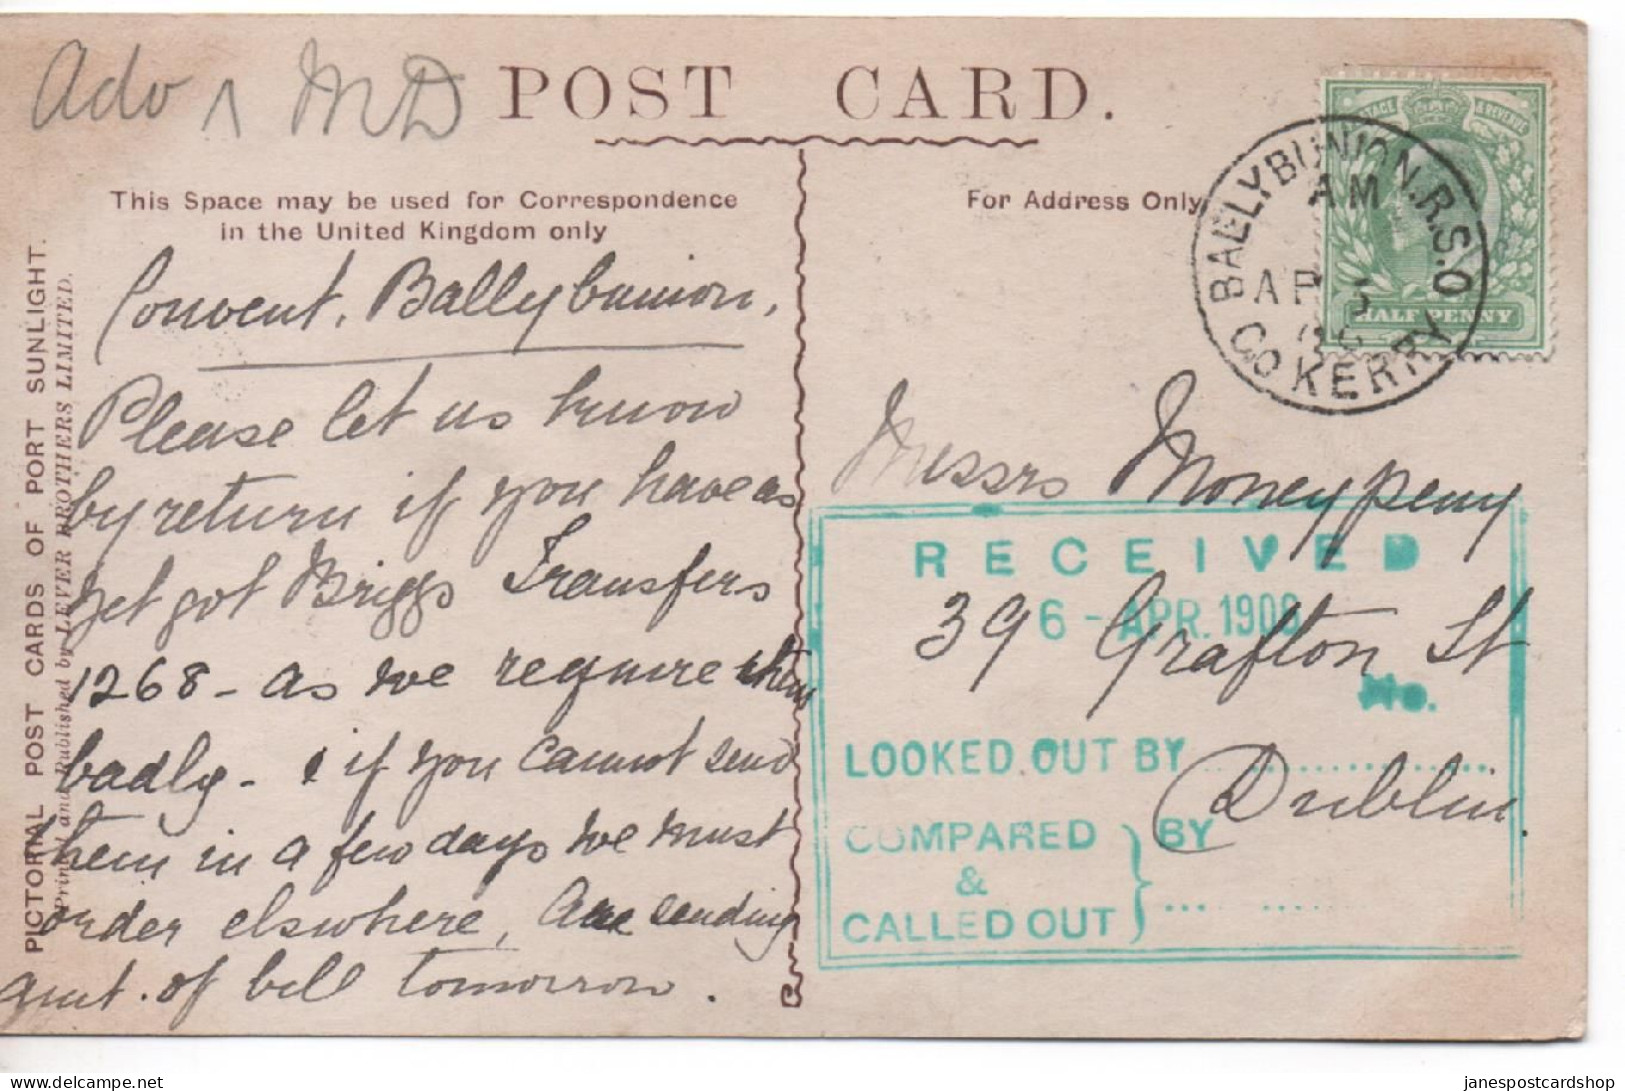 Adv ∧ MD
POST CARD.
This Space may be used for Correspondence
in the United Kingdom only
For Address Only
PICTORIAL POST CARDS OF PORT SUNLIGHT.
Printed and Published by LEVER BROTHERS LIMITED.
Convent, Ballybunion,
Please let us know
by return if you have as
yet got Briggs Transfers
1268 - as we require them
badly - if you cannot send
them in a few days we must
order elsewhere, Are sending
amt. of bill tomorrow.
BALLYBUNION.R.S.O
AM
AP 5
CO KERRY
POSTAGE & REVENUE
HALF PENNY
Messrs Moneypeny
39 Grafton St
Dublin.
RECEIVED
6 - APR. 1906
No.
LOOKED OUT BY
COMPARED
&
CALLED OUT
BY
delcampe.net
janespostcardshop